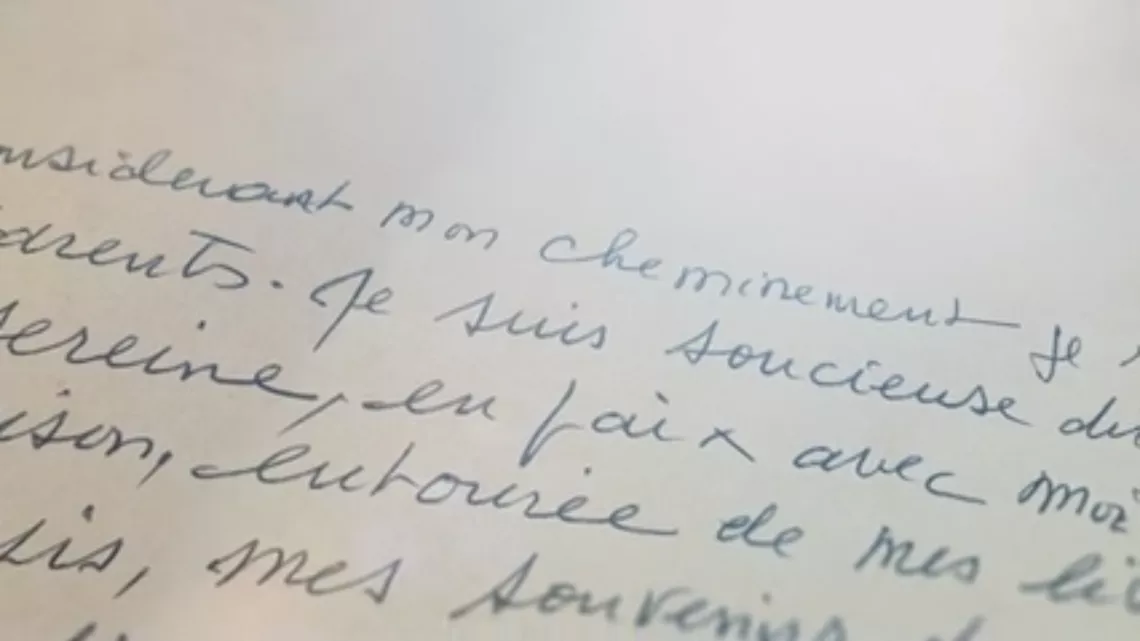 onsidérant mon cheminement je
arents. Je suis soucieuse du
sereine, en paix avec moi
ison, entourée de mes li
sis, mes souvenirs d